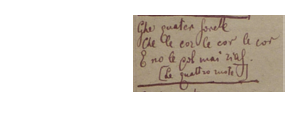 Ghe quater sorelle
Che le cor le cor le cor
E no le pol mai
[Le quattro ruote]